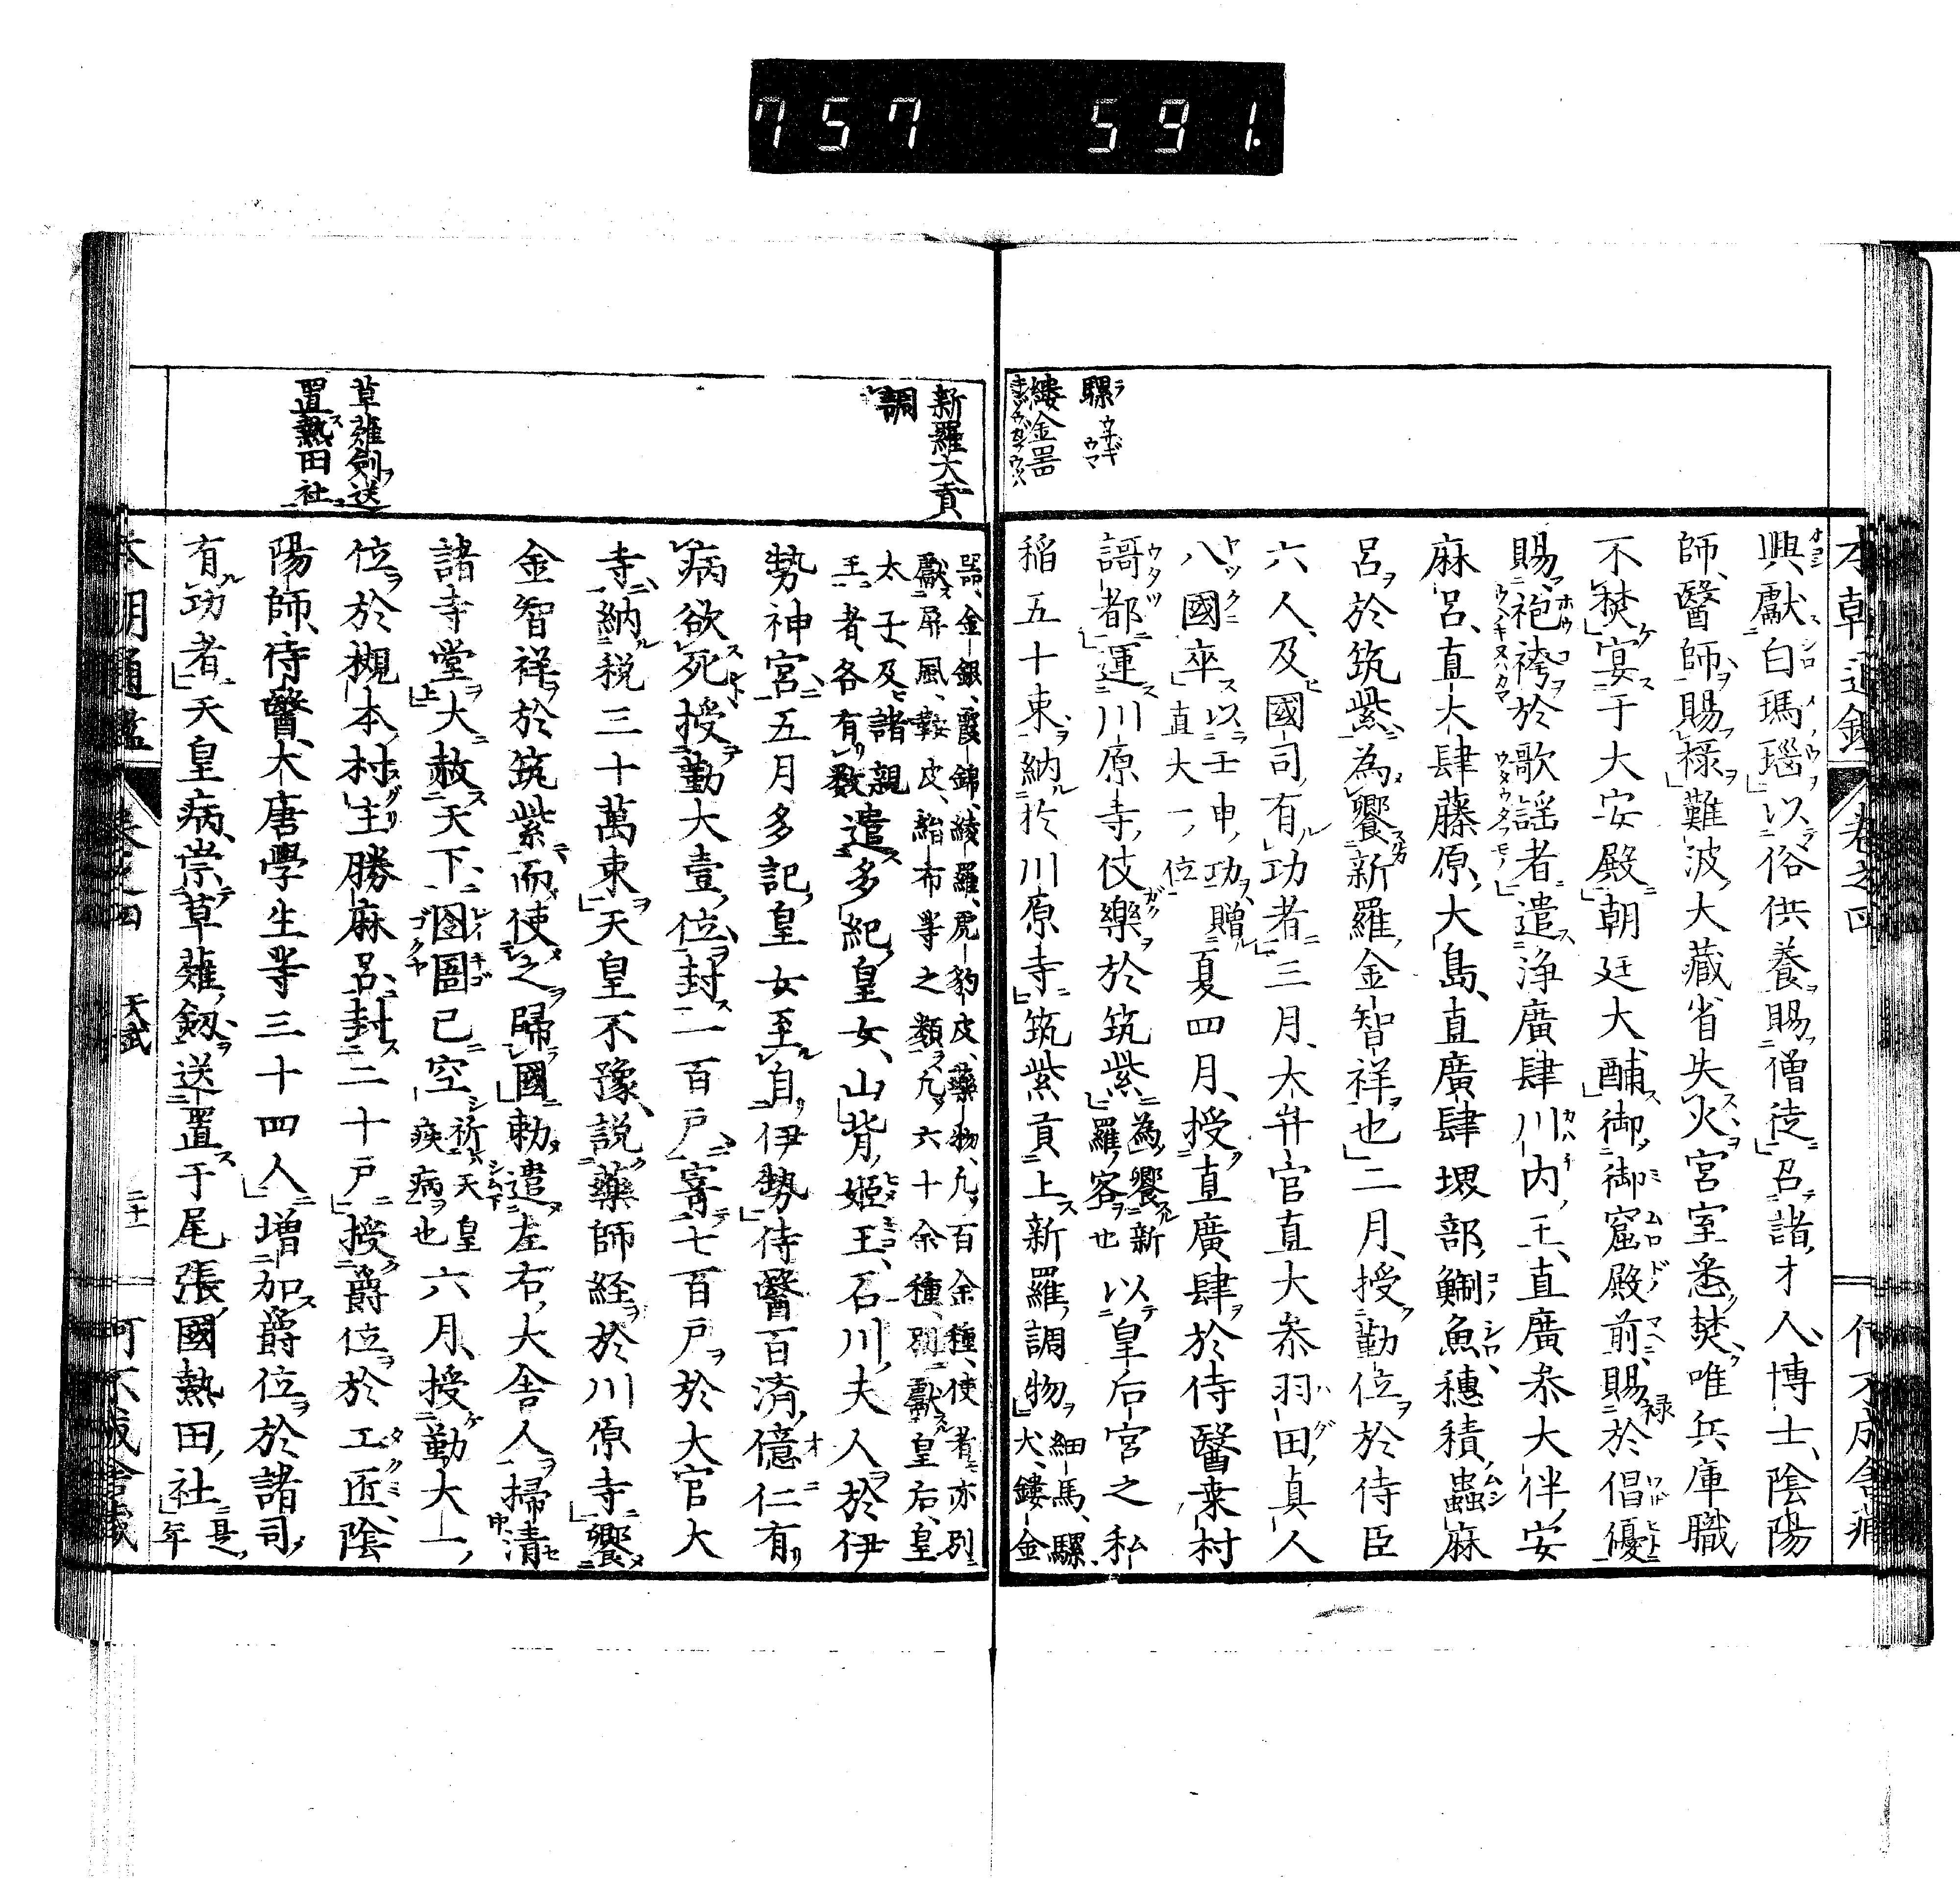 757 591.
本朝通鑑 卷之四
騾
鏤金器
興獻白瑪瑙以俗供養賜僧徒召諸才人博士陰陽
師醫師賜祿難波大藏省失火宮室悉焚唯兵庫職
不焚宴于大安殿朝廷大酺御御窟殿前賜祿於倡優
賜袍袴於歌謡者遣浄廣肆川內王直廣參大伴安
麻呂直大肆藤原大島直廣肆堺部鯯魚穗積蟲麻
呂於筑紫為饗新羅金智祥也二月授勤位於侍臣
六人及國司有功者三月大弁官直大參羽田真人
八國卒以壬申功贈直大一位夏四月授直廣肆於侍醫桒村
謌都運川原寺伎樂於筑紫為饗新羅客也以皇后宮之私
稲五十束納於川原寺筑紫貢上新羅調物細馬騾犬鏤金
新羅大貢調
草薙劍送置熱田社
器金銀霞錦綾羅虎豹皮藥物凡百余種使者亦別
獻屏風鞍皮絁布等之類凡六十余種別獻皇后皇
太子及諸親王者各有数遣多紀皇女山背姬王石川夫人於伊
勢神宮五月多記皇女至自伊勢侍醫百済億仁有
病欲死授勤大壹位封一百戸寄七百戸於大官大
寺納税三十萬束天皇不豫說藥師経於川原寺饗
金智祥於筑紫而使之歸國勅遣左右大舎人掃清
諸寺堂大赦天下囹圄已空祈天皇疾病也六月授勤大一
位於槻本村主勝麻呂封二十戸授爵位於工匠陰
陽師侍醫大唐學生等三十四人增加爵位於諸司
有功者天皇病崇草薙劔送置于尾張國熱田社是年
本朝通鑑 卷之四 天武 二十一